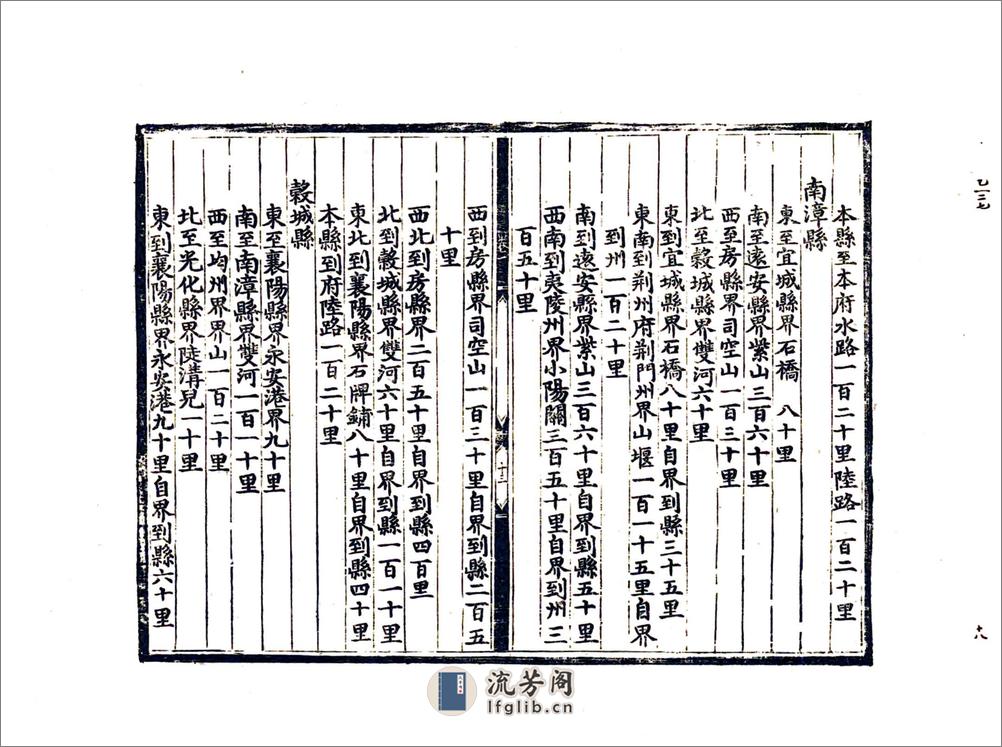 本縣至本府水路一百二十里陸路一百二十里
南漳縣
東至宜城縣界石橋 八十里
南至遠安縣界紫山三百六十里
西至房縣界司空山一百三十里
北至穀城縣界雙河六十里
東到宜城縣界石橋八十里自界到縣三十五里
東南到荆州府荆門州界山堰一百一十五里自界
到州一百二十里
南到遠安縣界紫山三百六十里自界到縣五十里
西南到夷陵州界小陽關三百五十里自界到州三
百五十里
西到房縣界司空山一百三十里自界到縣二百五
十里
西北到房縣界二百五十里自界到縣四百里
北到穀城縣界雙河六十里自界到縣一百一十里
東北到襄陽縣界石牌鋪八十里自界到縣四十里
本縣到府陸路一百二十里
穀城縣
東至襄陽縣界永安港界九十里
南至南漳縣界雙河一百一十里
西至均州界界山一百二十里
北至光化縣界陡溝兒一十里
東到襄陽縣界永安港九十里自界到縣六十里
十三
乙三七
十八
流芳阁
lfglib.cn